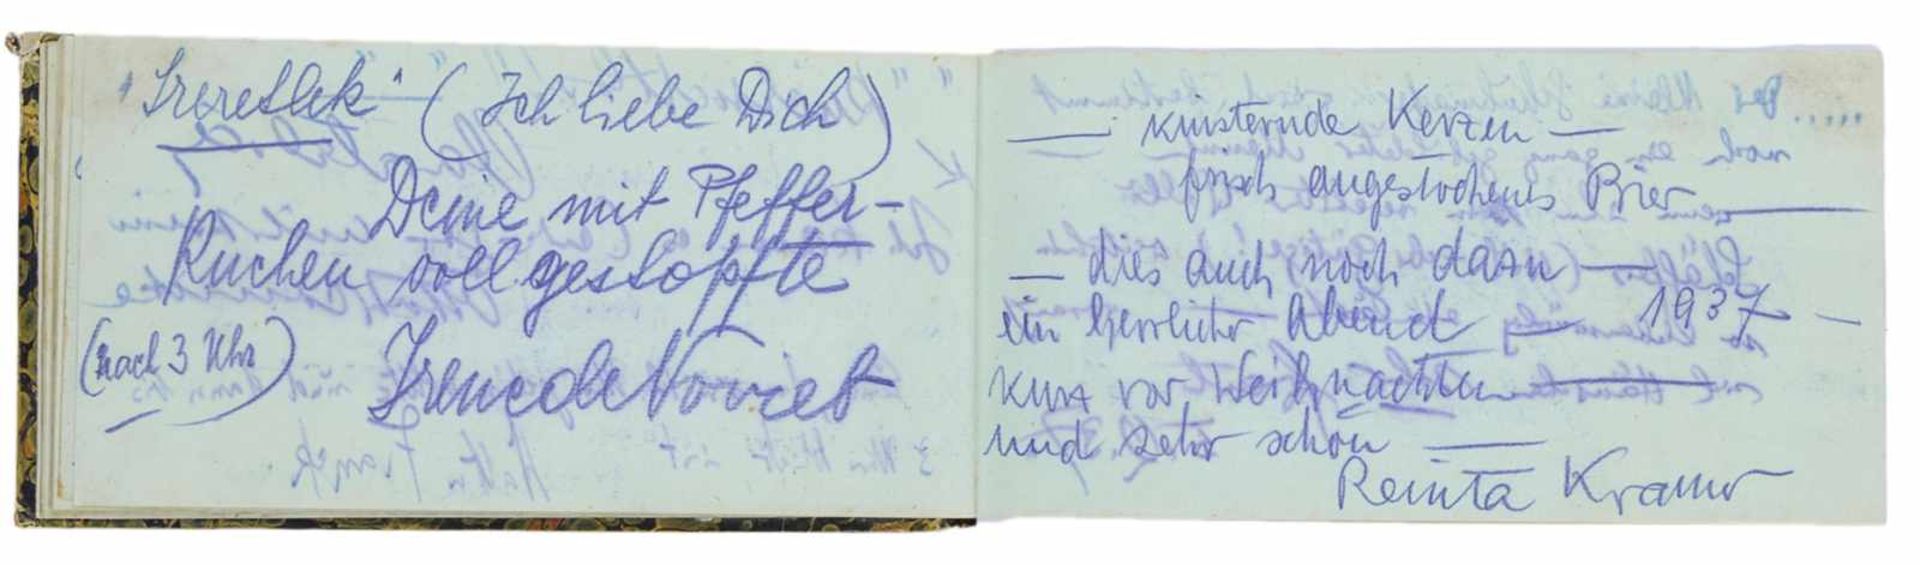 "Szeretlek" (Ich liebe Dich)
Deine mit Pfeffer-
Kuchen vollgestopfte
(nach 3 Uhr)
Irene de Noviret
— knisternde Kerzen —
frisch angestochenes Bier —
— dies auch noch dazu —
ein herrlicher Abend — 1937 —
kurz vor Weihnachten —
und sehr schön —
Renita Kramer